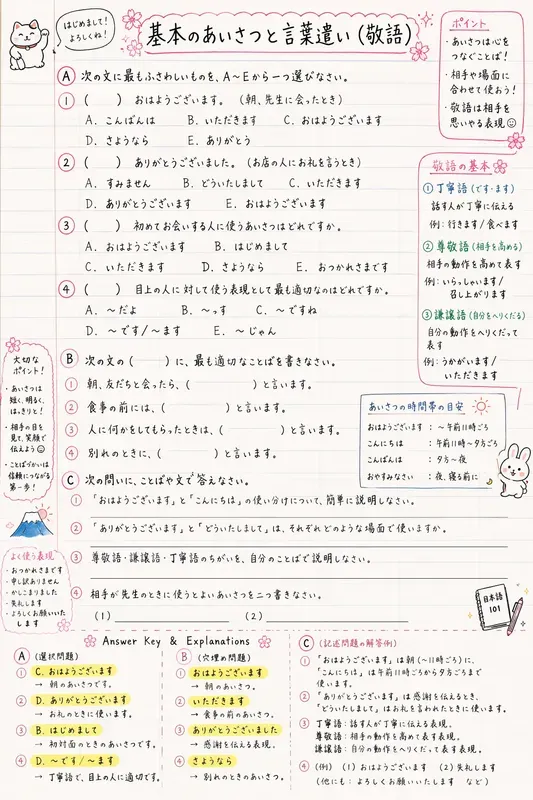 はじめまして!
よろしくね!
基本のあいさつと言葉遣い(敬語)
ポイント
・あいさつは心を
つなぐことば!
・相手や場面に
合わせて使おう!
・敬語は相手を
思いやる表現☺
A 次の文に最もふさわしいものを、A~Eから一つ選びなさい。
① (  ) おはようございます。(朝、先生に会ったとき)
A. こんばんは B. いただきます C. おはようございます
D. さようなら E. ありがとう
② (  ) ありがとうございました。(お店の人にお礼を言うとき)
A. すみません B. どういたしまして C. いただきます
D. ありがとうございます E. おはようございます
③ (  ) 初めてお会いする人に使うあいさつはどれですか。
A. おはようございます B. はじめまして
C. いただきます D. さようなら E. おつかれさまです
④ (  ) 目上の人に対して使う表現として最も適切なのはどれですか。
A. ~だよ B. ~っす C. ~ですね
D. ~です/~ます E. ~じゃん
敬語の基本
① 丁寧語(です・ます)
話す人が丁寧に伝える
例:行きます/食べます
② 尊敬語(相手を高める)
相手の動作を高めて表す
例:いらっしゃいます/
召し上がります
③ 謙譲語(自分をへりくだる)
自分の動作をへりくだって
表す
例:うかがいます/
いただきます
大切な
ポイント!
・あいさつは
短く、明るく、
はっきりと!
・相手の目を
見て、笑顔で
伝えよう☺
・ことばづかいは
信頼につながる
第一歩!
B 次の文の(  )に、最も適切なことばを書きなさい。
① 朝、友だちと会ったら、(  )と言います。
② 食事の前には、(  )と言います。
③ 人に何かをしてもらったときは、(  )と言います。
④ 別れのときに、(  )と言います。
あいさつの時間帯の目安
おはようございます :~午前11時ごろ
こんにちは :午前11時~夕方ごろ
こんばんは :夕方~夜
おやすみなさい :夜、寝る前に
C 次の問いに、ことばや文で答えなさい。
① 「おはようございます」と「こんにちは」の使い分けについて、簡単に説明しなさい。
② 「ありがとうございます」と「どういたしまして」は、それぞれどのような場面で使いますか。
③ 尊敬語・謙譲語・丁寧語のちがいを、自分のことばで説明しなさい。
④ 相手が先生のときに使うとよいあいさつを二つ書きなさい。
(1) (2)
よく使う表現
・おつかれさまです
・申し訳ありません
・かしこまりました
・失礼します
・よろしくお願いいた
します
日本語
101
Answer Key & Explanations
A (選択問題)
① C. おはようございます
→ 朝のあいさつです。
② D. ありがとうございます
→ お礼のときに使います。
③ B. はじめまして
→ 初対面のときのあいさつです。
④ D. ~です/~ます
→ 丁寧語で、目上の人に適切です。
B (穴埋め問題)
① おはようございます
→ 朝のあいさつ。
② いただきます
→ 食事の前のあいさつ。
③ ありがとうございました
→ 感謝を伝える表現。
④ さようなら
→ 別れのときのあいさつ。
C (記述問題の解答例)
① 「おはようございます」は朝(~11時ごろ)に、
「こんにちは」は午前11時ごろから夕方ごろまで
使います。
② 「ありがとうございます」は感謝を伝えるとき、
「どういたしまして」はお礼を言われたときに使います。
③ 丁寧語:話す人が丁寧に伝える表現。
尊敬語:相手の動作を高めて表す表現。
謙譲語:自分の動作をへりくだって表す表現。
④ (例) (1) おはようございます (2) 失礼します
(他にも:よろしくお願いいたします など)